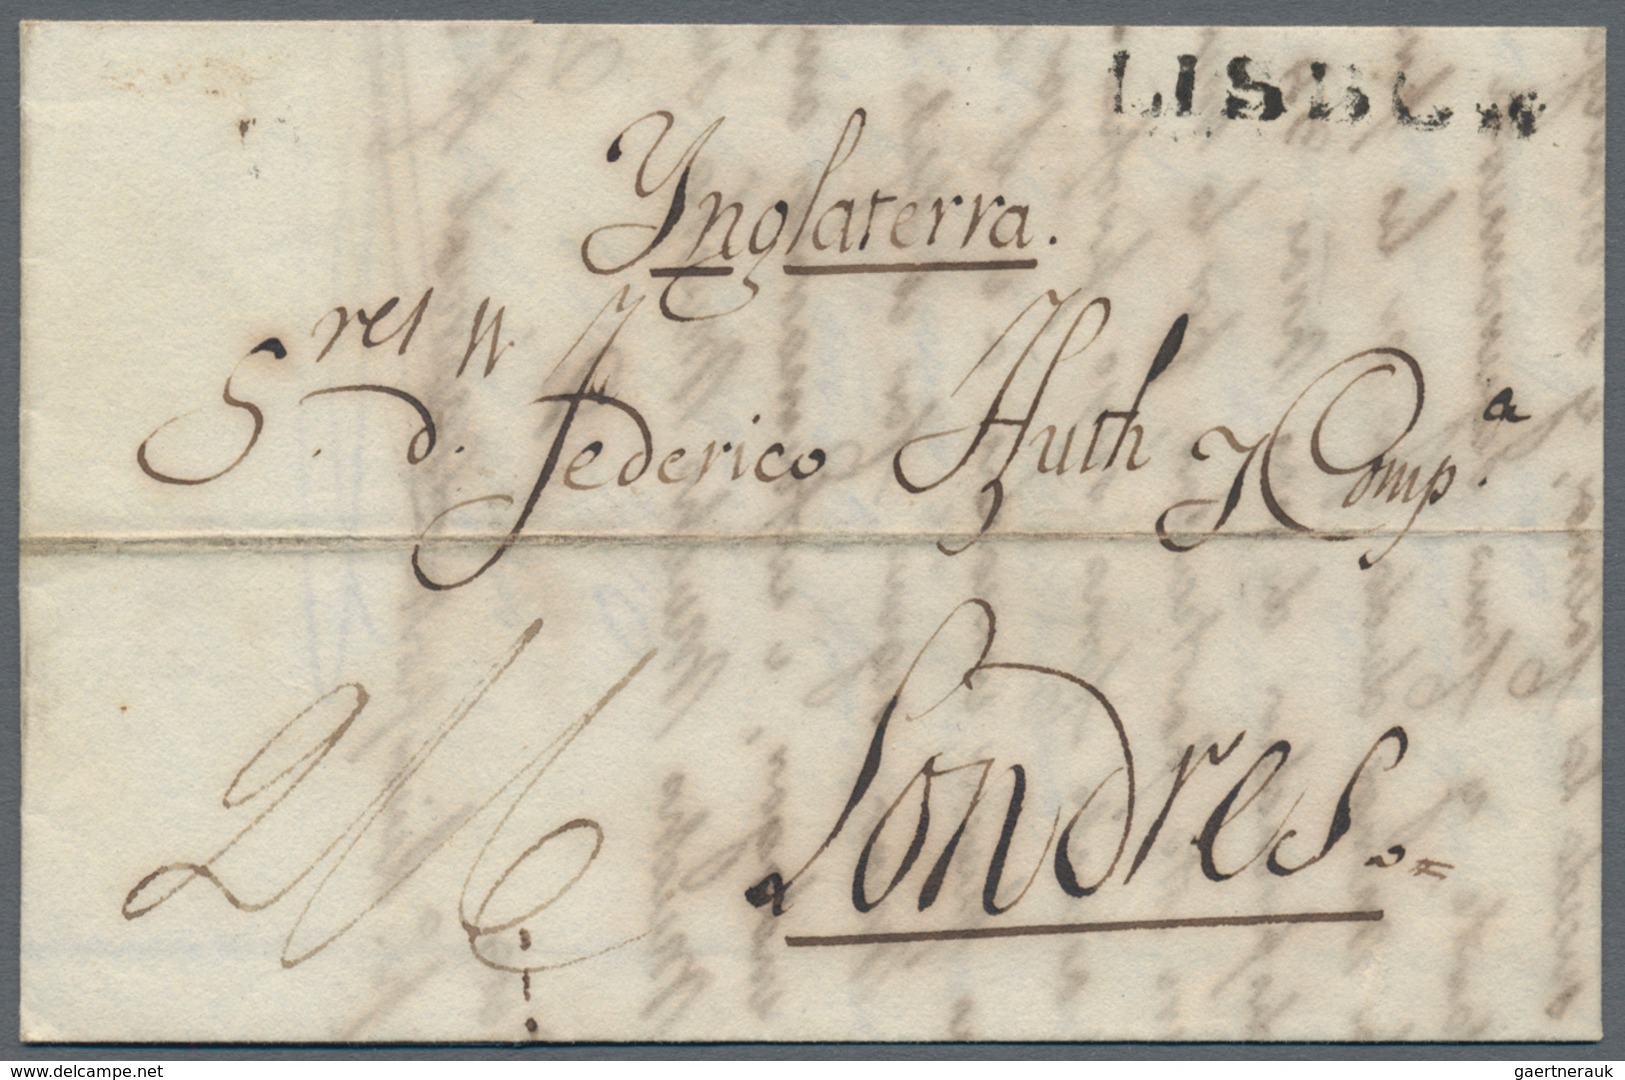 LISBOA
Ynglaterra.
S.res d. Federico Huth y Comp.a
2/6
Londres.
www.delcampe.net
gaertnerauk